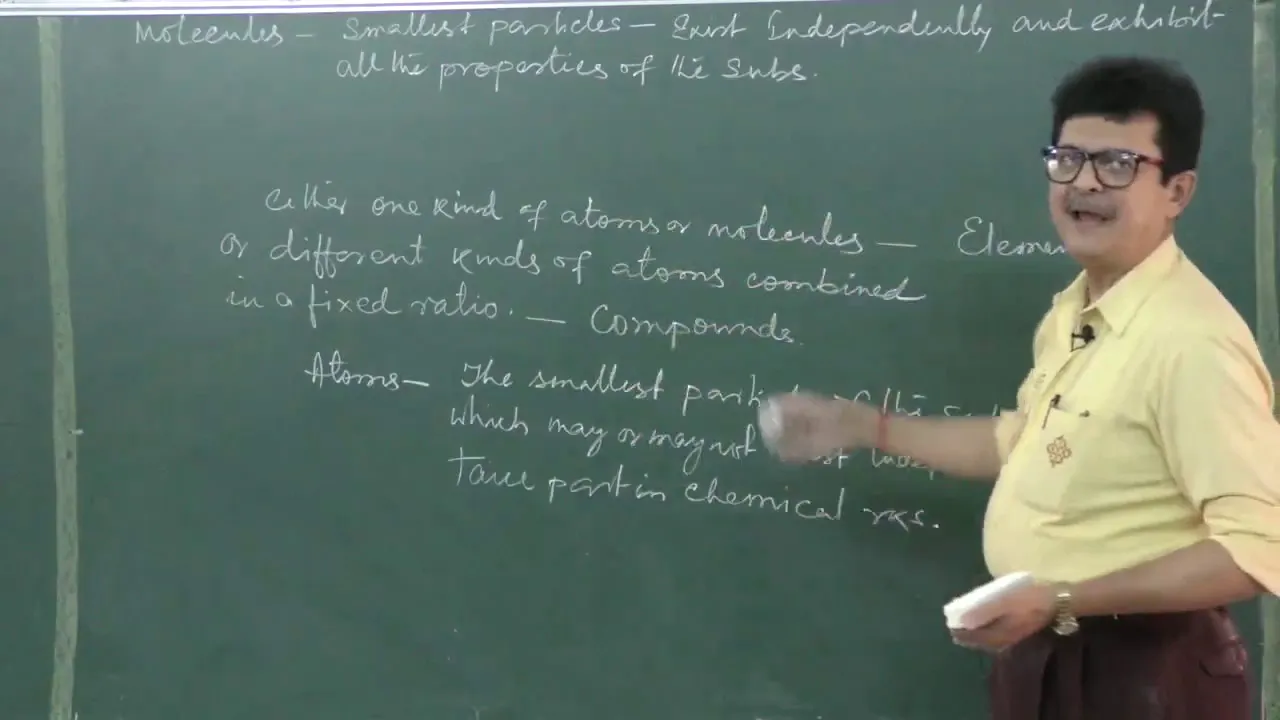 Molecules – Smallest particles – Exist Independently and exhibit
all the properties of the Subs.
either one kind of atoms or molecules — Elemen
or different kinds of atoms combined
in a fixed ratio. — Compounds.
Atoms – The smallest parti of the
which may or may not
Take part in chemical rxs.